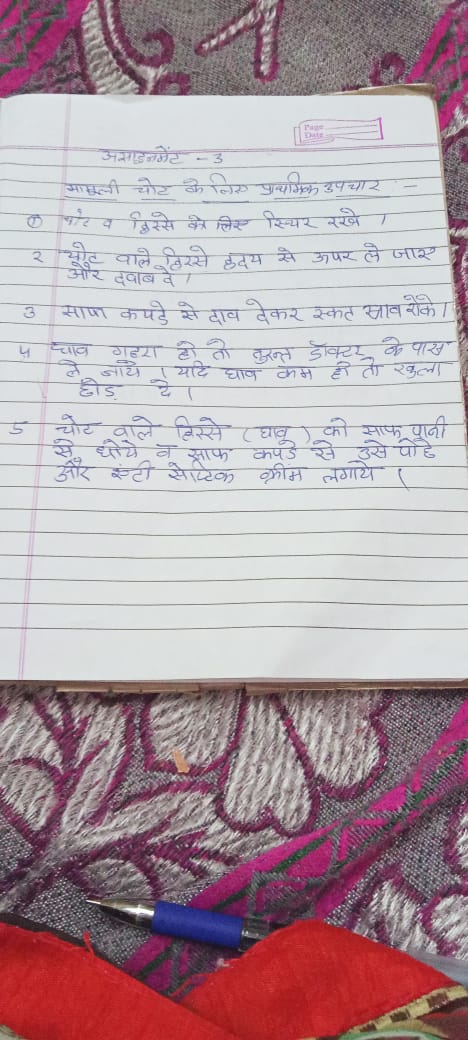 Page
Date
असाइनमेंट - 3
मामूली चोट के लिए प्राथमिक उपचार :-
① चोट व हिस्से को लिए स्थिर रखे ।
2 चोट वाले हिस्से हृदय से ऊपर ले जाए
और दवाब दे ।
3 साफ कपडे से दाव देकर रक्त स्त्राव रोके ।
4 घाव गहरा हो तो तुरन्त डॉक्टर के पास
ले जाये । यदि घाव कम हो तो खुला
छोड़ दे ।
5 चोट वाले हिस्से (घाव) को साफ पानी
से धोये व साफ कपडे से उसे पोछे
और एंटी सेप्टिक क्रीम लगाये ।